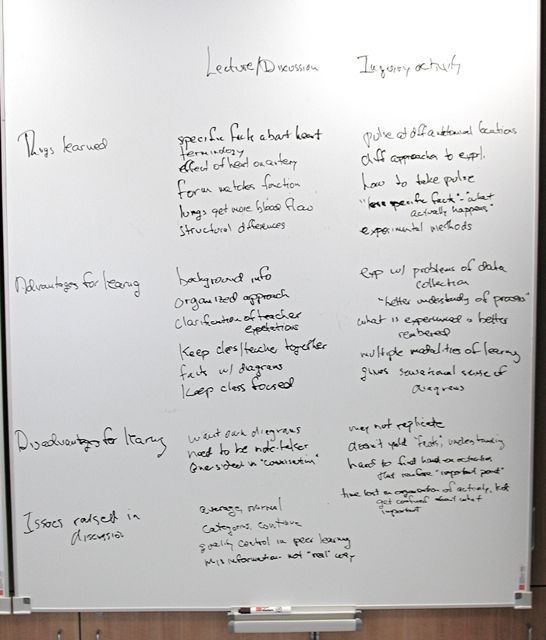 Lecture/Discussion
Inquiry activity
Things learned
specific facts about heart
terminology
effect of heart on artery
form matches function
lungs get more blood flow
structural differences
pulse at diff anatomical locations
diff approaches to expl.
how to take pulse
"less specific facts" - "what
actually happens"
experimental methods
Advantages for learning
background info
organized approach
clarification of teacher
expectations
Keep class/teacher together
facts w/ diagrams
Keep class focused
exp w/ problems of data
collection
"better understanding of process"
what is experienced is better
remembered
multiple modalities of learning
gives sensational sense of
diagrams
Disadvantages for learning
want own diagrams
need to be note-taker
One sided in "conversation"
may not replicate
doesn't yield "facts", understanding
hard to find hands on activities
that reinforce "important points"
time lost in organization of activity, kids
get confused about what
important
Issues raised in
discussion
average, normal
categories,
quality control in peer learning
misinformation - not "real" way